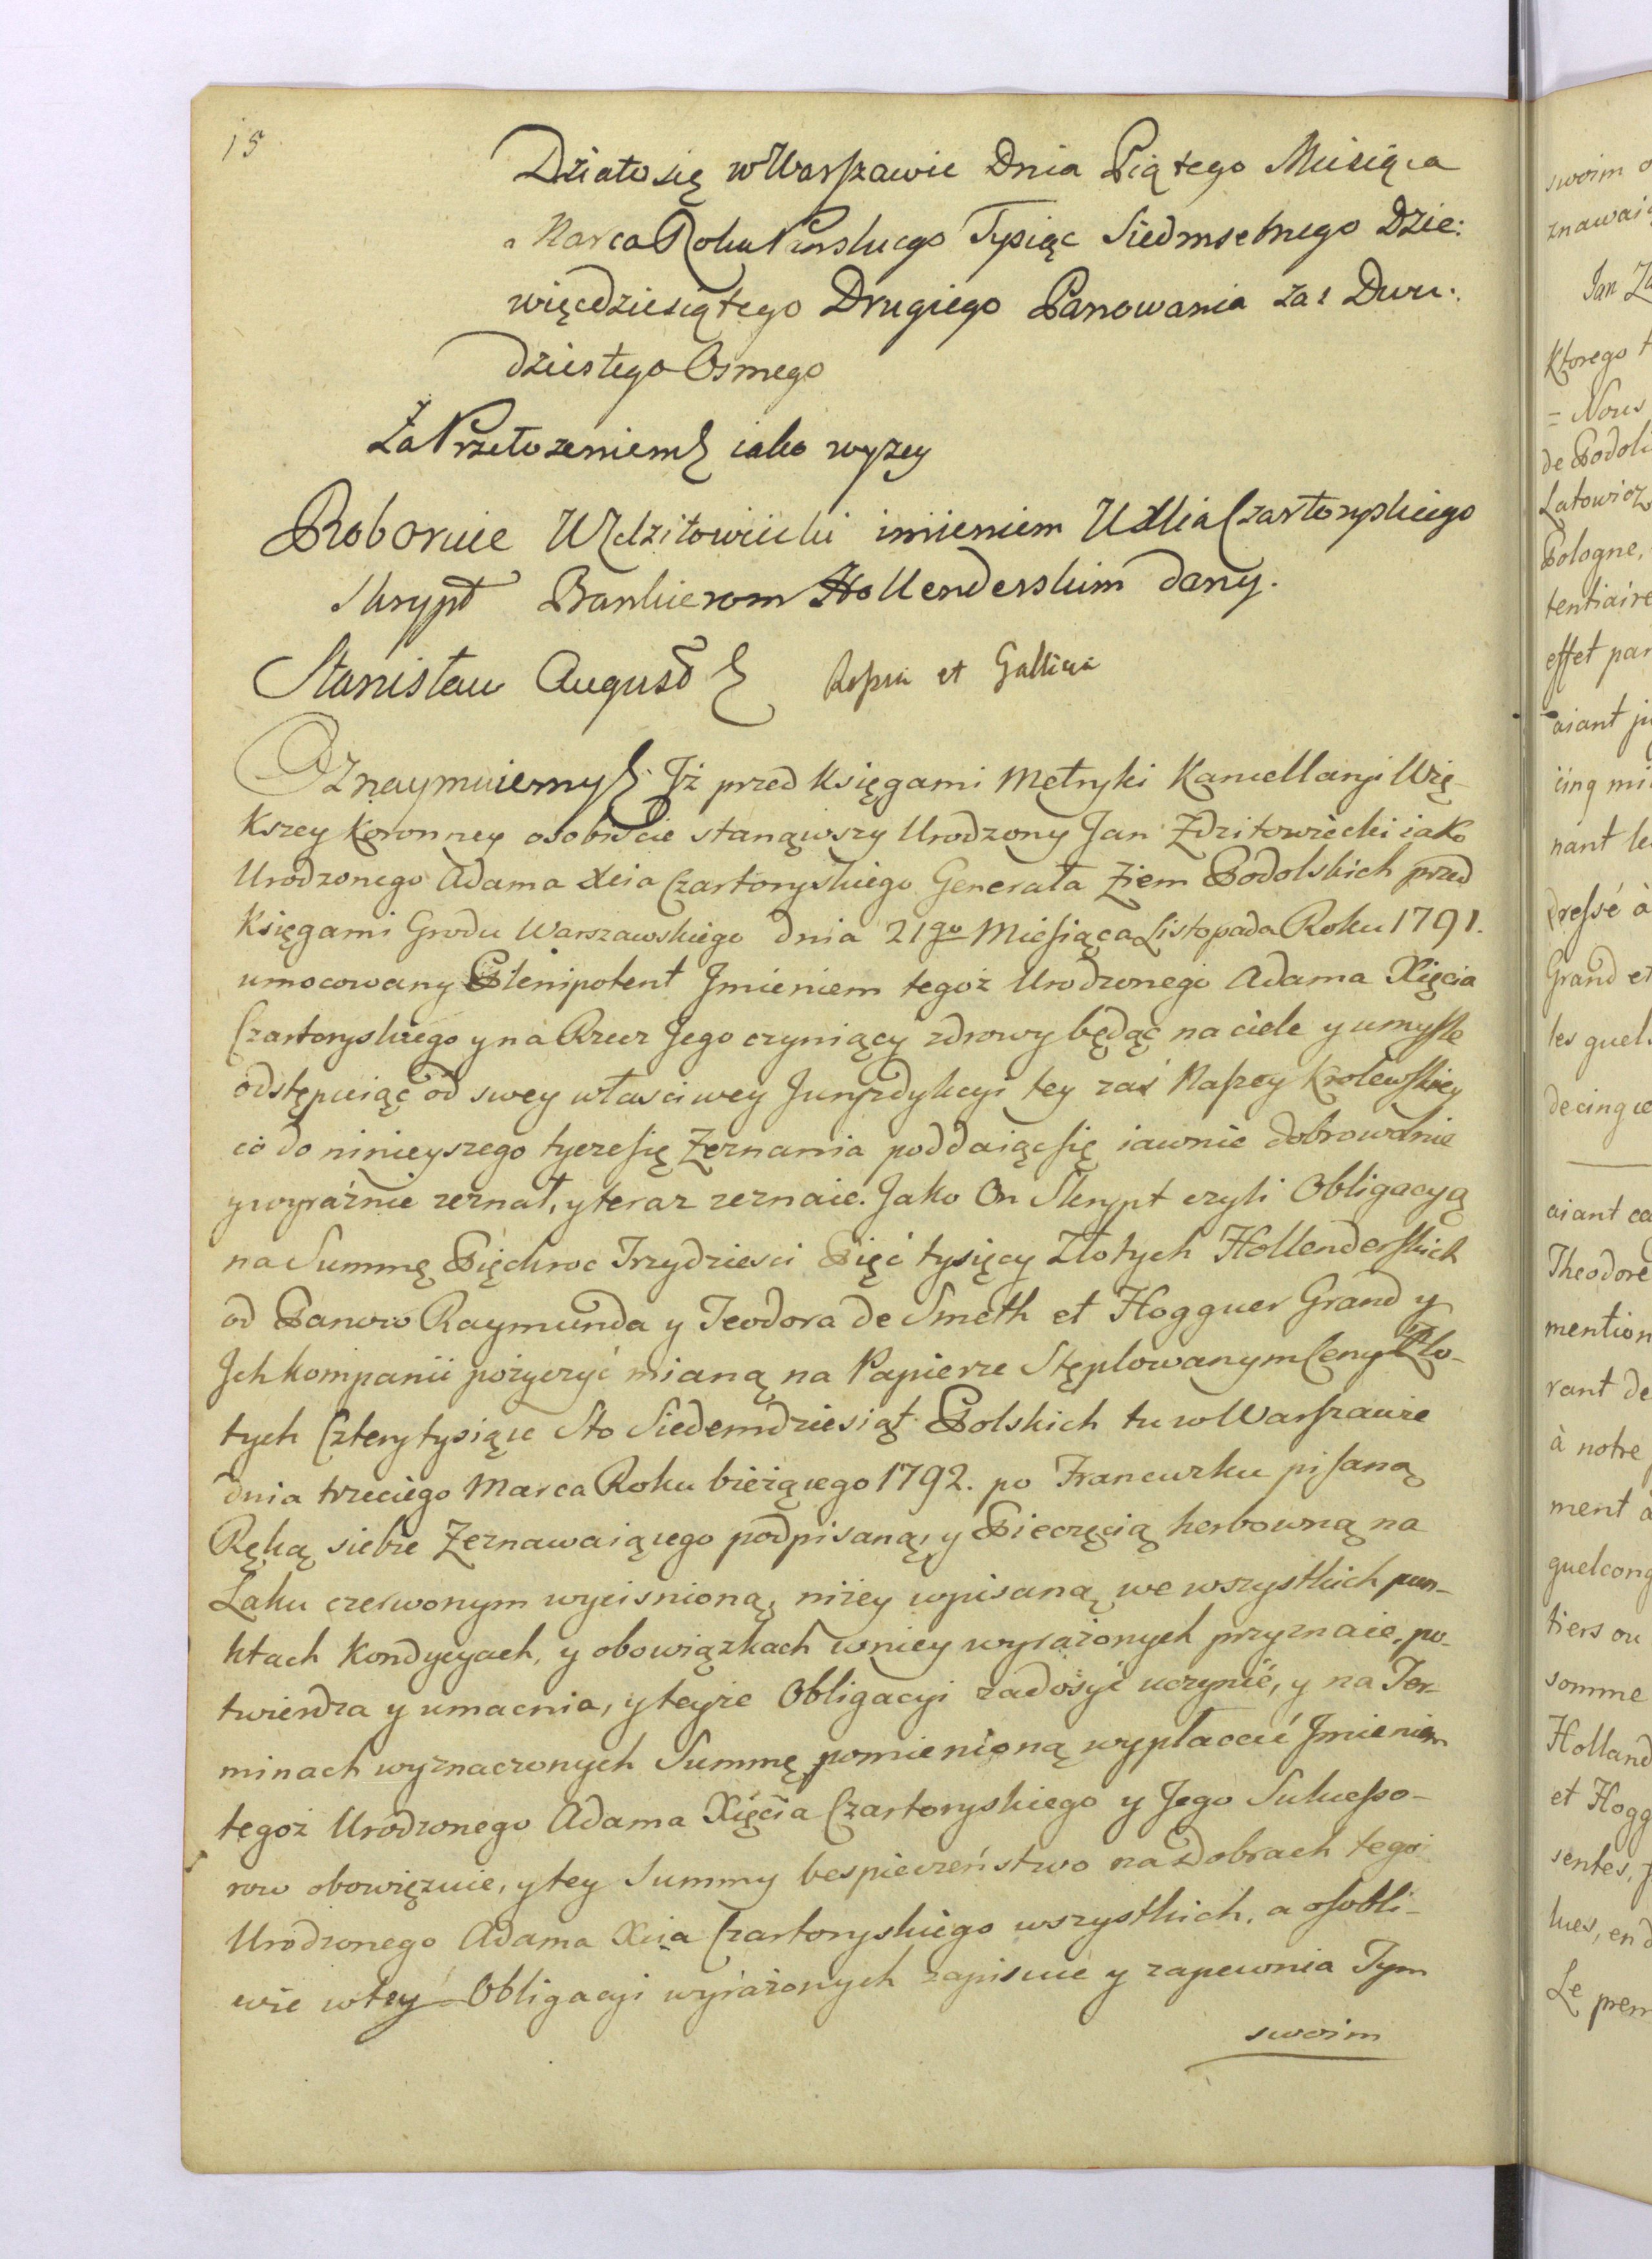 15
Działo się w Warszawie Dnia Piątego Miesiąca
Marca Roku Pańskiego Tysiąc Siedmsetnego Dzie:
więćdziesiątego Drugiego Panowania zaś Dwu:
dziestego Osmego
Za Przełożeniem iako wyzey
Roboruie W Zdzitowiecki imieniem UXcia Czartoryskiego
Skrypt Bankierom Hollenderskim dany.
Stanisław August et Gallica
Oznaymuiemy Iż przed Księgami Metryki Kancellaryi Wię-
kszey Koronney osobiście stanąwszy Urodzony Jan Zdzitowiecki iako
Urodzonego Adama Xcia Czartoryskiego Generała Ziem Podolskich przed
Księgami Grodu Warszawskiego dnia 21go Miesiąca Listopada Roku 1791.
umocowany Plenipotent Jmieniem tegoż Urodzonego Adama Xięcia
Czartoryskiego y na Rzecz Jego czyniący zdrowy będąc na ciele y umyśle
odstępuiąc od swey własciwey Juryzdykcyi tey zaś Naszey Krolewskiey
co do ninieyszego tycze się Zeznania poddaiąc się iawnie dobrowolnie
y wyraźnie zeznał, y teraz zeznaie. Jako On Skrypt czyli Obligacyą
na Summę Pięckroc Trzydziesci Pięć tysięcy Złotych Hollenderskich
od Panow Raymunda y Teodora de Smeth et Hogguer Grand y
Jch kompanii pożyczyć mianą na Papierze Stęplowanym Ceny Zło-
tych Cztery tysiące Sto Siedemdziesiąt Polskich tu w Warszawie
dnia trzeciego Marca Roku bieżącego 1792. po Francuzku pisaną
Ręką siebie Zeznawaiącego podpisaną, y Pieczęcią herbowną na
Laku czerwonym wycisnioną, niżey wpisaną we wszystkich pun-
ktach Kondycyach, y obowiązkach w niey wyrażonych przyznaie, po-
twierdza y umacnia, y teyże Obligacyi zadosyć uczynić, y na Ter-
minach wyznaczonych Summę pomienioną wypłacać Jmieniem
tegoż Urodzonego Adama Xięcia Czartoryskiego y Jego Sukcesso-
row obowięzuie, y tey Summy bespieczeństwo na Dobrach tegoż
Urodzonego Adama Xcia Czartoryskiego wszystkich, a osobli-
wie w tey Obligacyi wyrażonych zapisuie y zapewnia Tym
swoim
swoim
Jan
Ktorego
= Nous
de Podoli
Latowicz
Pologne,
tentiaire
effet par
aiant
cinq
nant
dressé à
Grand et
les quel
de cinq
aiant
Theodore
mention
rant de
à notre
ment
quelconq
tiers ou
somme
Holland
et Hogg
sentes,
Le prem